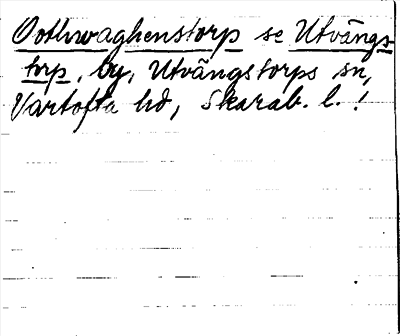 Oothwaghenstorp se Utvängs-
torp, by, Utvängstorps sn,
Vartofta hd, Skarab. l. !